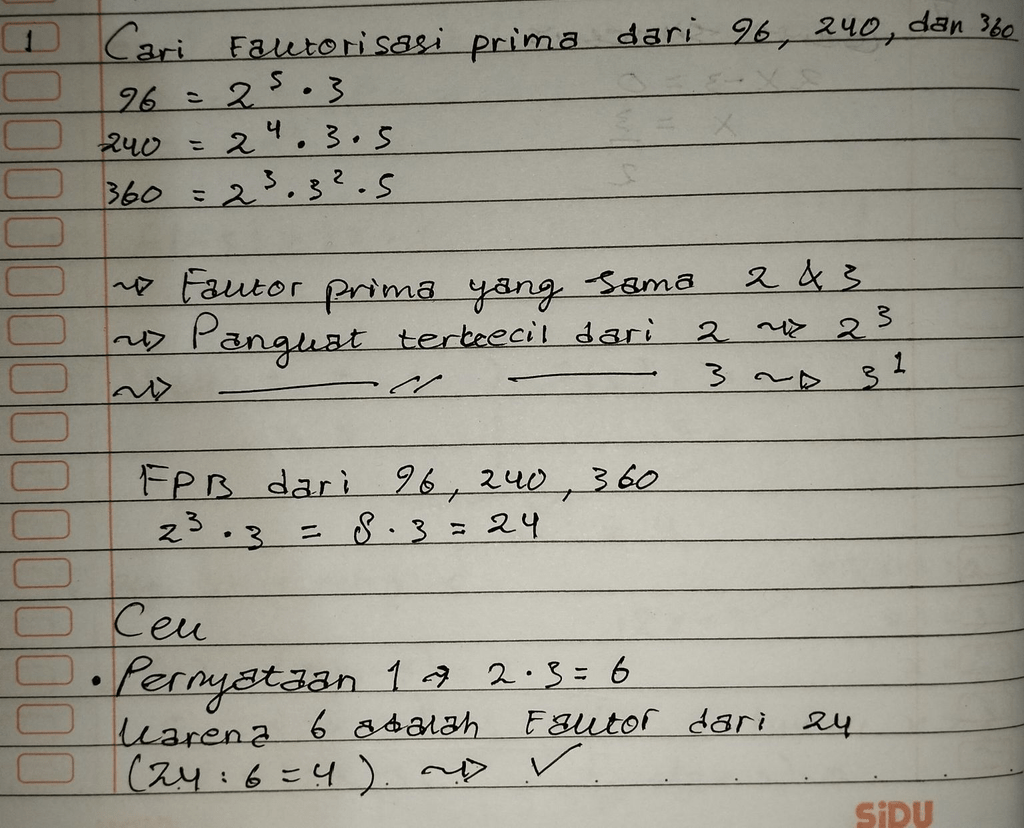 1 Cari Faktorisasi prima dari 96, 240, dan 360
96 = 2⁵ . 3
240 = 2⁴ . 3 . 5
360 = 2³ . 3² . 5
~> Faktor prima yang sama 2 & 3
~> Pangkat terkecil dari 2 ~> 2³
~> —— // —— 3 ~> 3¹
FPB dari 96, 240, 360
2³ . 3 = 8 . 3 = 24
Cek
• Pernyataan 1 → 2 . 3 = 6
Karena 6 adalah Faktor dari 24
(24 : 6 = 4) ~> ✓
SiDU